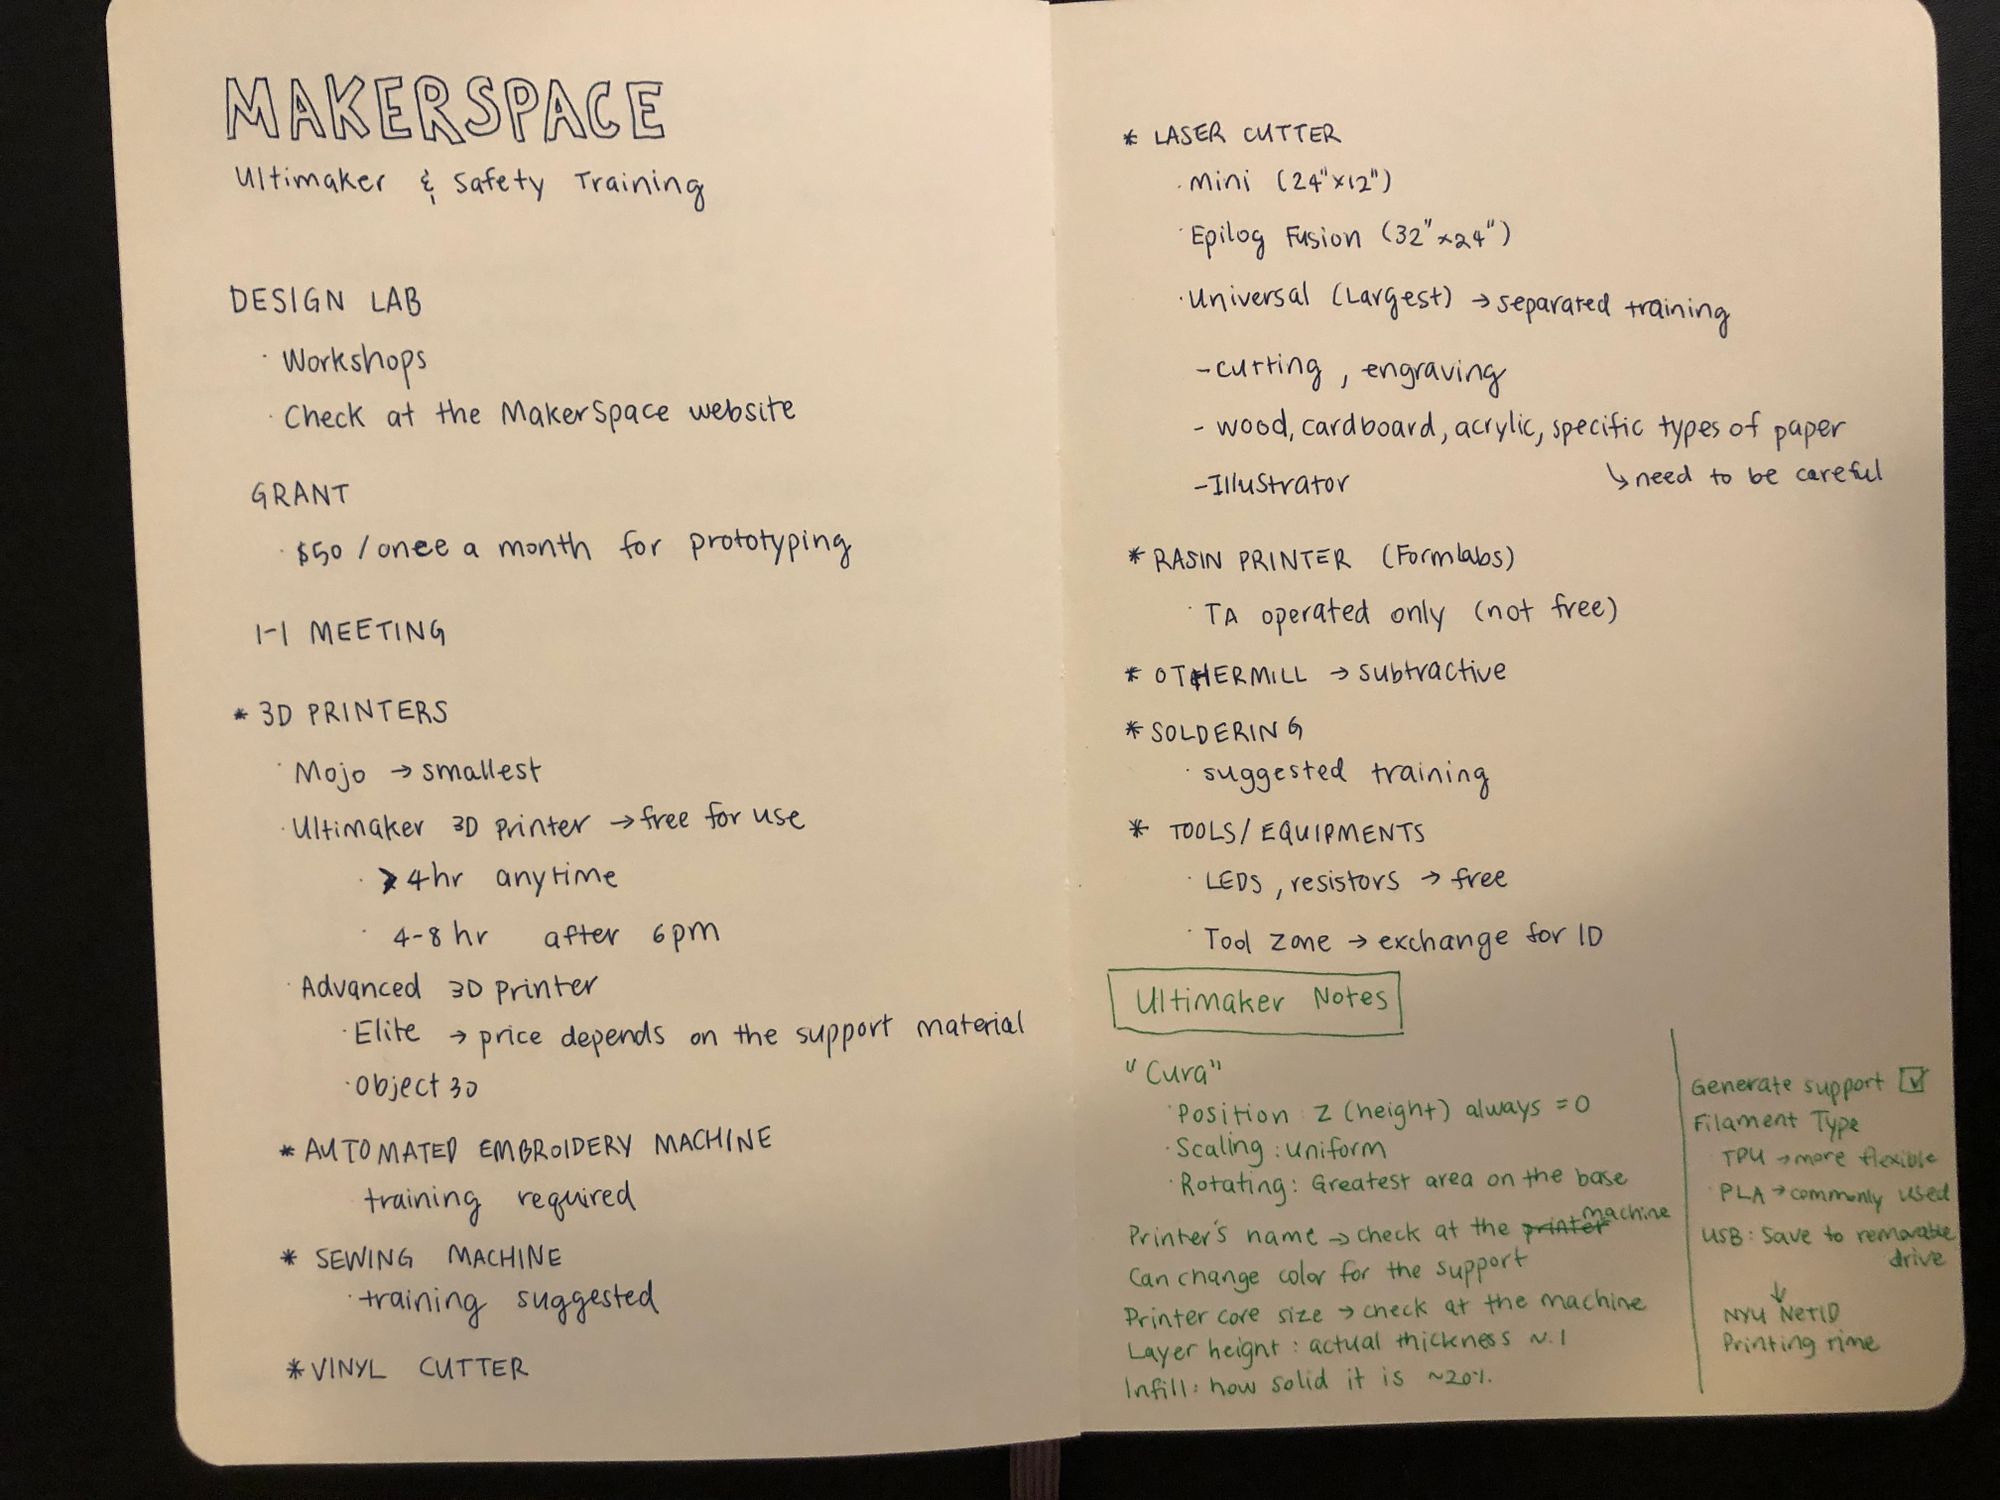 MAKERSPACE
Ultimaker & Safety Training
DESIGN LAB
· Workshops
· Check at the MakerSpace website
GRANT
· $50 / once a month for prototyping
1-1 MEETING
* 3D PRINTERS
· Mojo → smallest
· Ultimaker 3D Printer → free for use
· > 4hr anytime
· 4-8 hr after 6pm
· Advanced 3D Printer
· Elite → price depends on the support material
· Object 30
* AUTOMATED EMBROIDERY MACHINE
training required
* SEWING MACHINE
· training suggested
* VINYL CUTTER
* LASER CUTTER
· Mini (24"x12")
· Epilog Fusion (32"x24")
· Universal (Largest) → separated training
- cutting, engraving
- wood, cardboard, acrylic, specific types of paper
↳ need to be careful
- Illustrator
* RASIN PRINTER (Formlabs)
· TA operated only (not free)
* OTHERMILL → subtractive
* SOLDERING
· suggested training
* TOOLS/EQUIPMENTS
· LEDS, resistors → free
· Tool Zone → exchange for ID
Ultimaker Notes
"Cura"
· Position: Z (height) always = 0
· Scaling: Uniform
· Rotating: Greatest area on the base
Printer's name → check at the printer machine
Can change color for the support
Printer core size → check at the machine
Layer height: actual thickness ~.1
Infill: how solid it is ~20%.
Generate support ☑
Filament Type
TPU → more flexible
· PLA → commonly used
USB: Save to removable
drive
↓
NYU NetID
Printing time